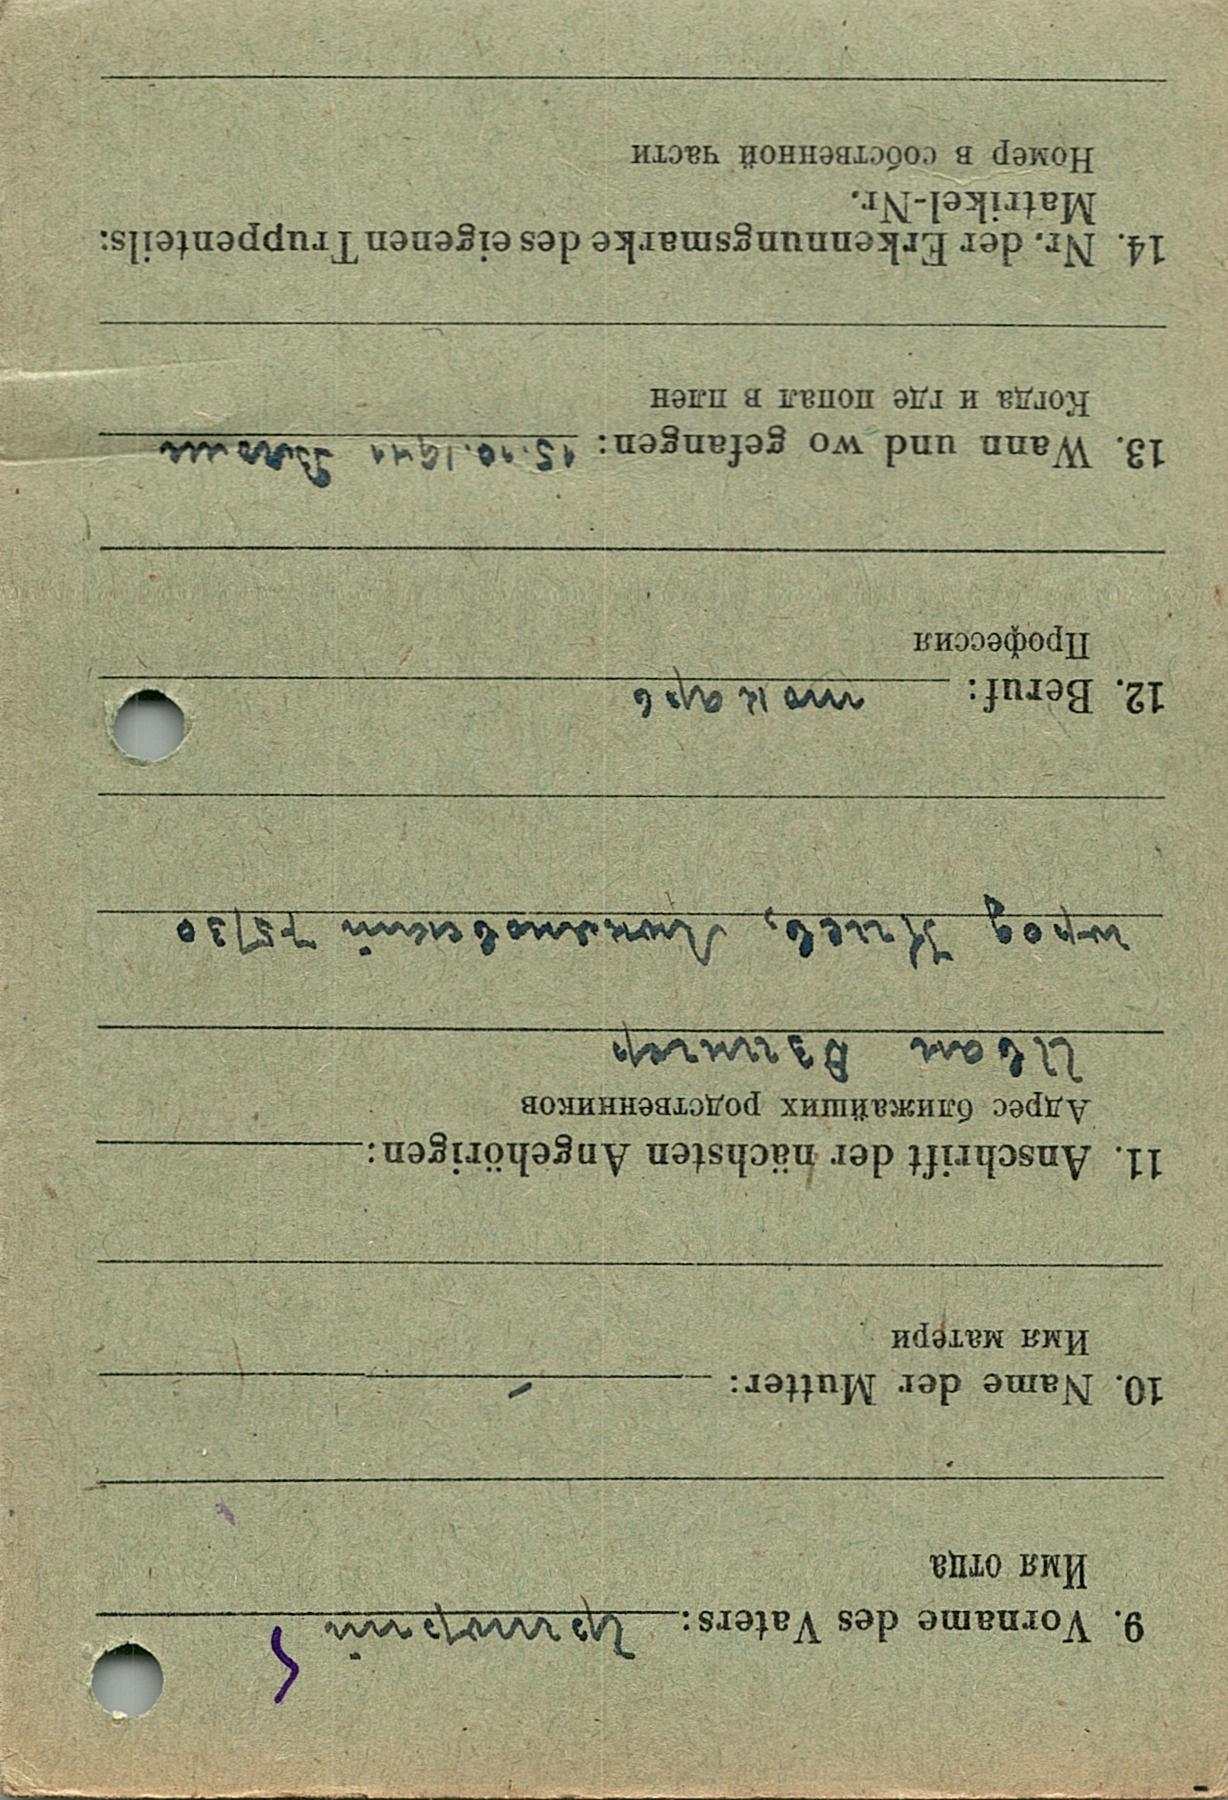 9. Vorname des Vaters: Григорий
Имя отца
10. Name der Mutter: —
Имя матери
11. Anschrift der nächsten Angehörigen:
Адрес ближайших родственников
Иван
город Киев, 75/30
12. Beruf: токарь
Профессия
13. Wann und wo gefangen: 15.10.1941
Когда и где попал в плен
14. Nr. der Erkennungsmarke des eigenen Truppenteils:
Matrikel-Nr.
Номер в собственной части